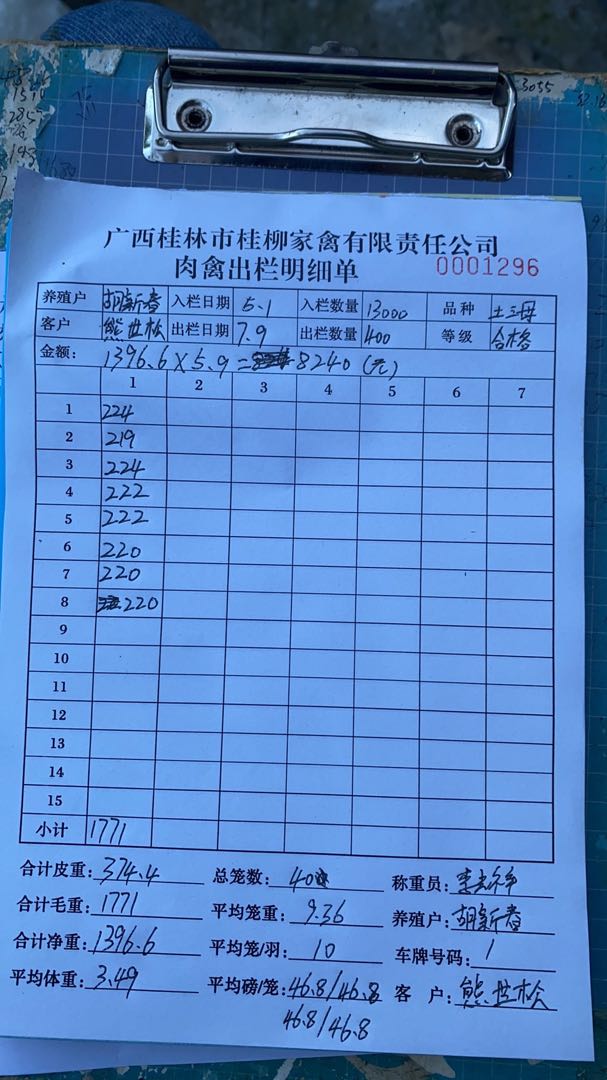 广西桂林市桂柳家禽有限责任公司
肉禽出栏明细单 0001296
养殖户 胡新春 入栏日期 5.1 入栏数量 13000 品种 土三母
客户 熊世松 出栏日期 7.9 出栏数量 400 等级 合格
金额: 1396.6×5.9=8240(元)
1 2 3 4 5 6 7
1 224
2 219
3 224
4 222
5 222
6 220
7 220
8 220
9
10
11
12
13
14
15
小计 1771
合计皮重: 374.4 总笼数: 40 称重员: 李
合计毛重: 1771 平均笼重: 9.36 养殖户: 胡新春
合计净重: 1396.6 平均笼/羽: 10 车牌号码: 1
平均体重: 3.49 平均磅/笼: 46.8/46.8 客 户: 熊世松
46.8/46.8